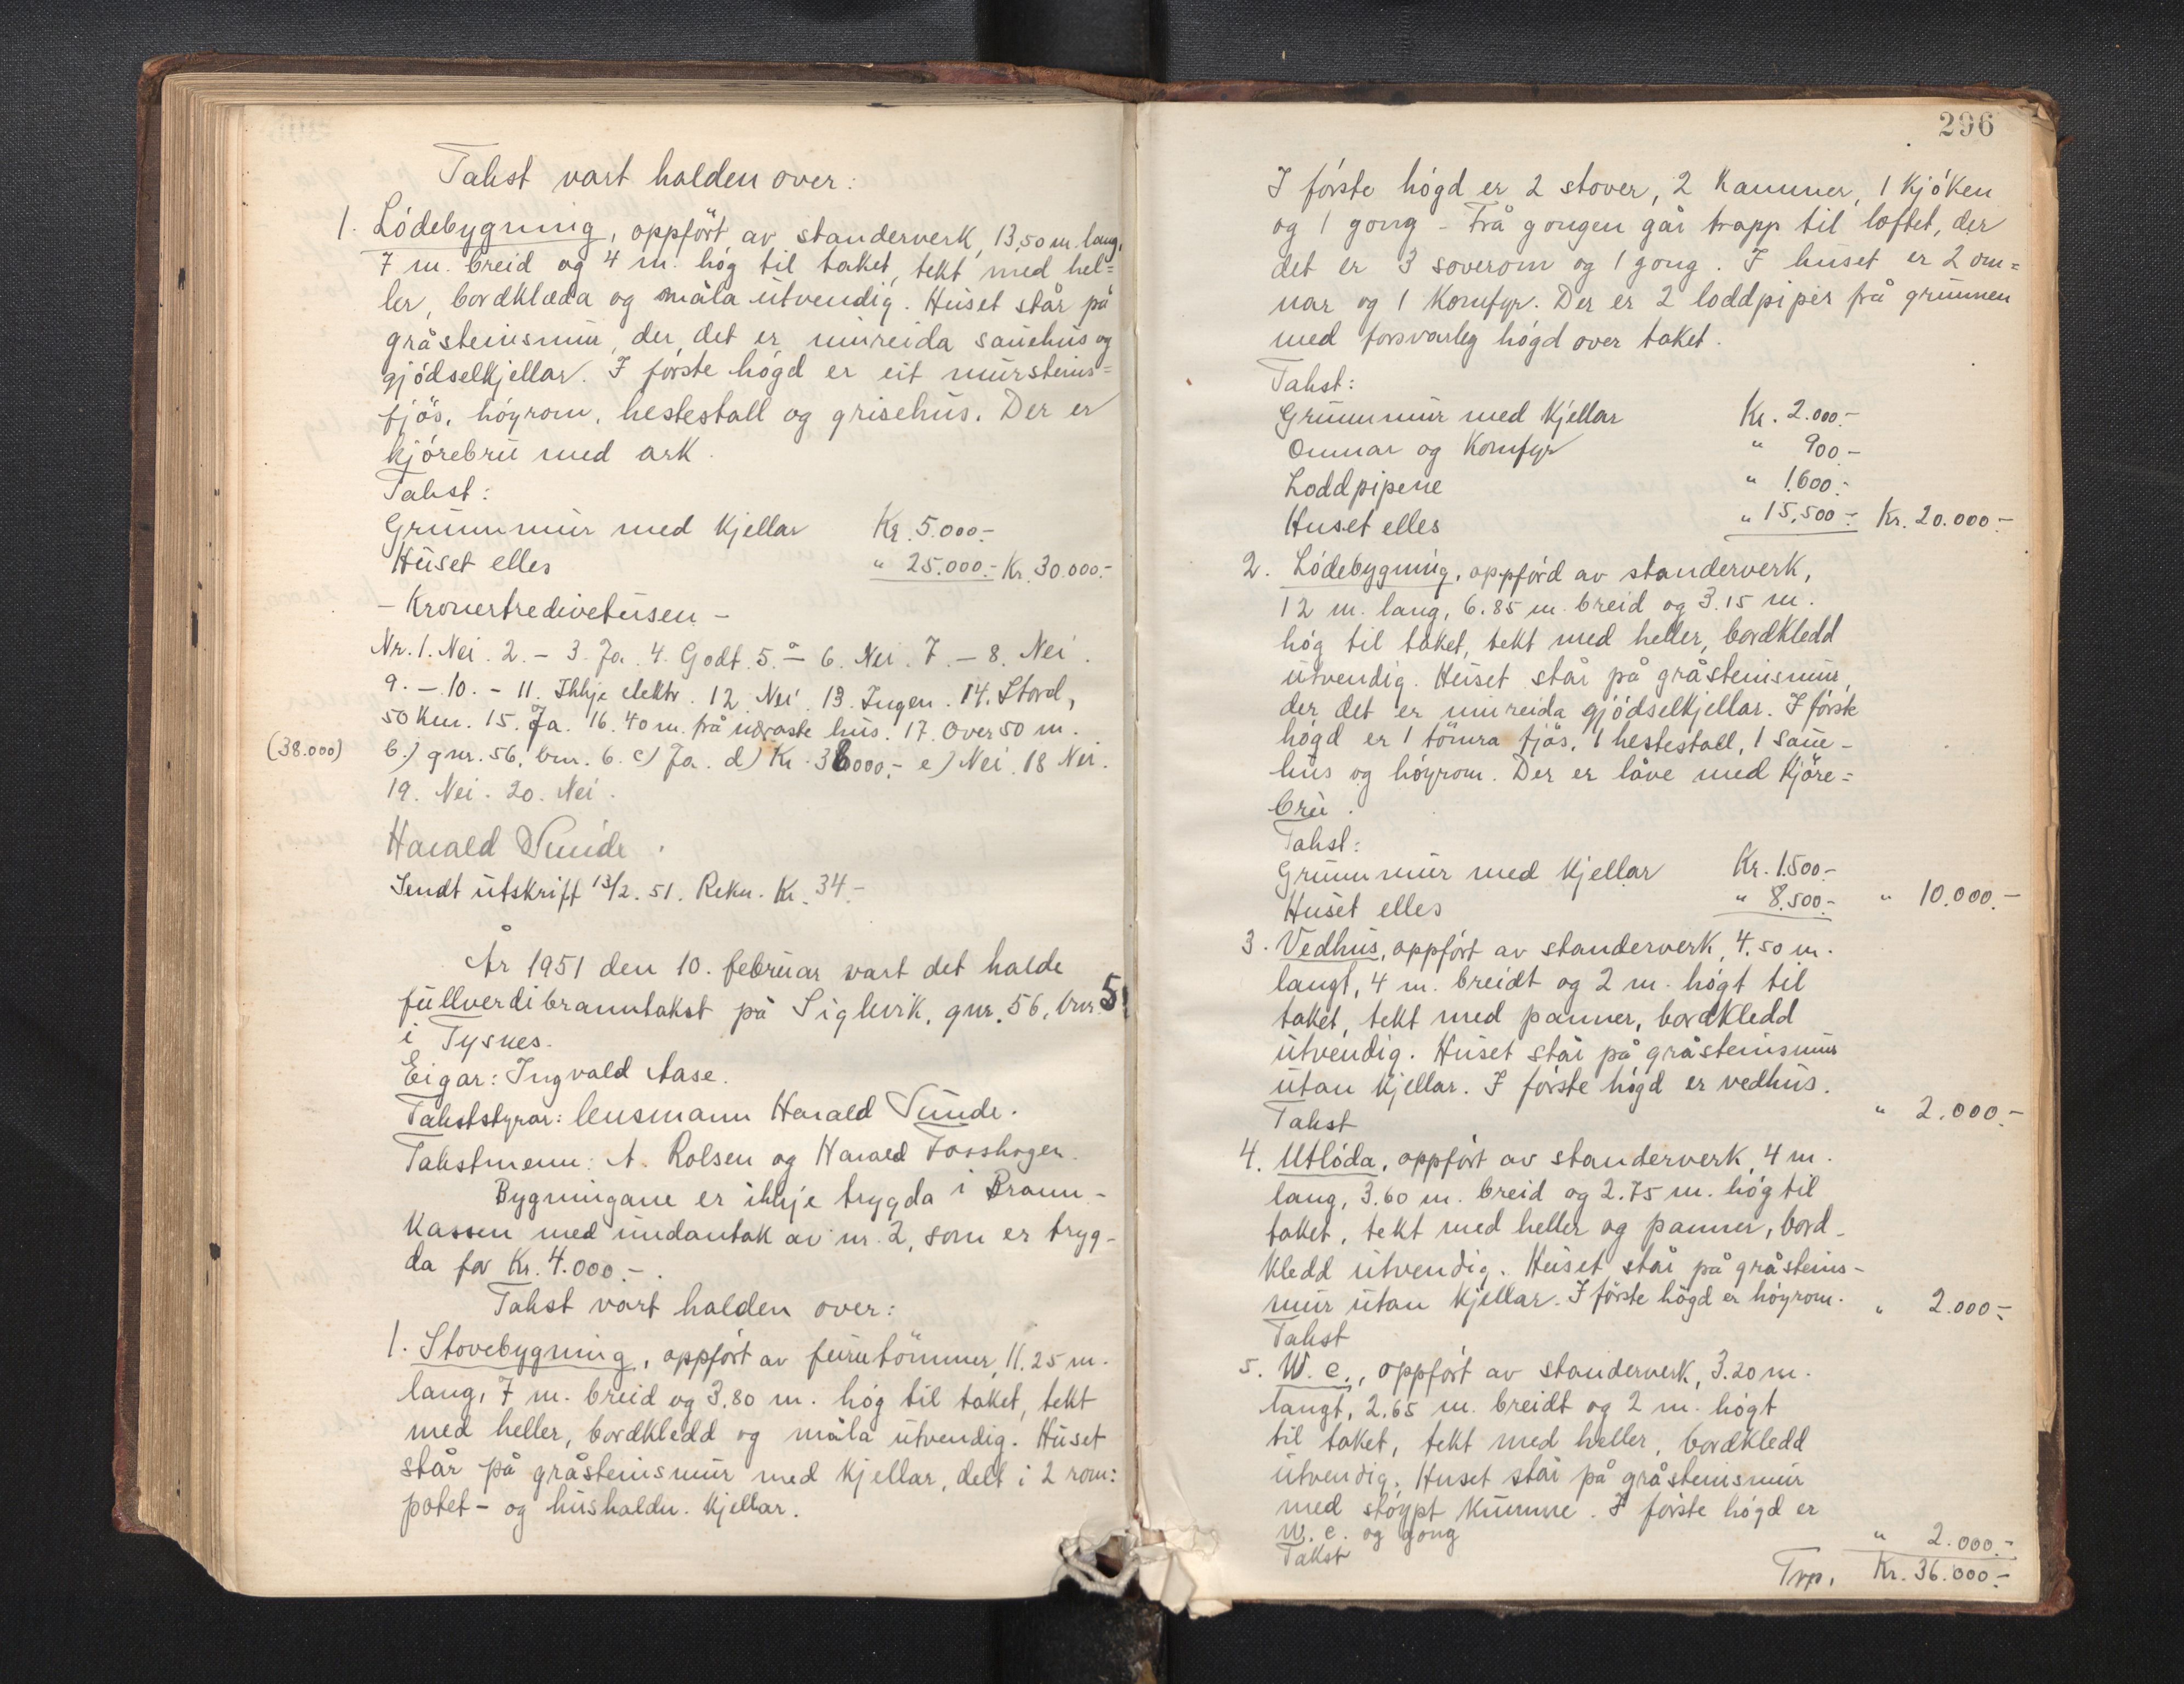 Takst vart halden over:
1. Lødebygning, oppført av standerverk, 13,50 m. lang,
7 m. breid og 4 m. høg til taket, tekt med hel=
ler, bordklæda og måla utvendig. Huset står på
gråsteinsmur, der det er innreida sauehus og
gjødselkjellar. I første høgd er eit mursteins=
fjøs, høyrom, hestestall og grisehus. Der er
kjørebru med ark.
Takst:
Grunnmur med kjellar Kr. 5.000.-
Huset elles " 25.000.- Kr. 30.000.-
- Kronertredivetusen -
Nr. 1. Nei. 2. - 3. Ja. 4. Godt. 5. - 6. Nei. 7. - 8. Nei.
9. - 10. - 11. Ikkje elektr. 12. Nei. 13. Ingen. 14. Stord,
50 km. 15. Ja. 16. 40 m. frå næraste hus. 17. Over 50 m.
(38.000) b.) gnr. 56, bnr. 6. c) Ja. d) Kr. 38000,- e) Nei. 18 Nei.
19. Nei. 20. Nei.
Harald Sunde.
Sendt utskrift 13/2. 51. Rekn. Kr. 34.-
År 1951 den 10. februar vart det halde
fullverdibranntakst på Siglevik, gnr. 56, bnr. 5
i Tysnes.
Eigar: Ingvald Aase.
Takststyrar: lensmann Harald Sunde.
Takstmenn: A. Rolsen og Harald
Bygningane er ikkje trygda i Brann-
kassen med undantak av nr. 2, som er tryg-
da for Kr. 4.000.-.
Takst vart halden over:
1. Stovebygning, oppført av furutømmer, 11.25 m.
lang, 7 m. breid og 3.80 m. høg til taket, tekt
med heller, bordkledd og måla utvendig. Huset
står på gråsteinsmur med kjellar, delt i 2 rom:
potet- og hushaldn. kjellar.
296
I første høgd er 2 stover, 2 kammer, 1 kjøken
og 1 gong - Frå gongen går trapp til loftet, der
det er 3 soverom og 1 gong. I huset er 2 om=
nar og 1 komfyr. Der er 2 loddpiper frå grunnen
med forsvarleg høgd over taket.
Takst:
Grunnmur med kjellar Kr. 2.000.-
Omnar og komfyr " 900.-
Loddpipene " 1.600.-
Huset elles " 15.500.- Kr. 20.000.-
2. Lødebygning, oppførd av standerverk,
12 m. lang, 6.85 m. breid og 3.15 m.
høg til taket, tekt med heller, bordkledd
utvendig. Huset står på gråsteinsmur,
der det er innreida gjødselkjellar. I første
høgd er 1 tømra fjøs, 1 hestestall, 1 saue-
hus og høyrom. Der er låve med kjøre=
bru.
Takst:
Grunnmur med kjellar Kr. 1.500.-
Huset elles " 8.500.- " 10.000.-
3. Vedhus, oppført av standerverk, 4.50 m.
langt, 4 m. breidt og 2 m. høgt til
taket, tekt med panner, bordkledd
utvendig. Huset står på gråsteinsmur
utan kjellar. I første høgd er vedhus.
Takst " 2.000.-
4. Utløda, oppført av standerverk, 4 m.
lang, 3.60 m. breid og 2.75 m. høg til
taket, tekt med heller og panner, bord-
kledd utvendig. Huset står på gråsteins-
mur utan kjellar. I første høgd er høyrom.
Takst " 2.000.-
5. W.c., oppført av standerverk, 3.20 m.
langt, 2.65 m. breidt og 2 m. høgt
til taket, tekt med heller, bordkledd
utvendig. Huset står på gråsteinsmur
med støypt kumme. I første høgd er
w.c. og gong
Takst " 2.000.-
Trp. Kr. 36.000.-